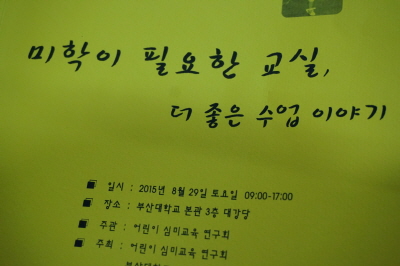 미학이 필요한 교실,
더 좋은 수업 이야기
일시 : 2015년 8월 29일 토요일 09:00-17:00
장소 : 부산대학교 본관 3층 대강당
주관 : 어린이 심미교육 연구회
주최 : 어린이 심미교육 연구회
부산대학교